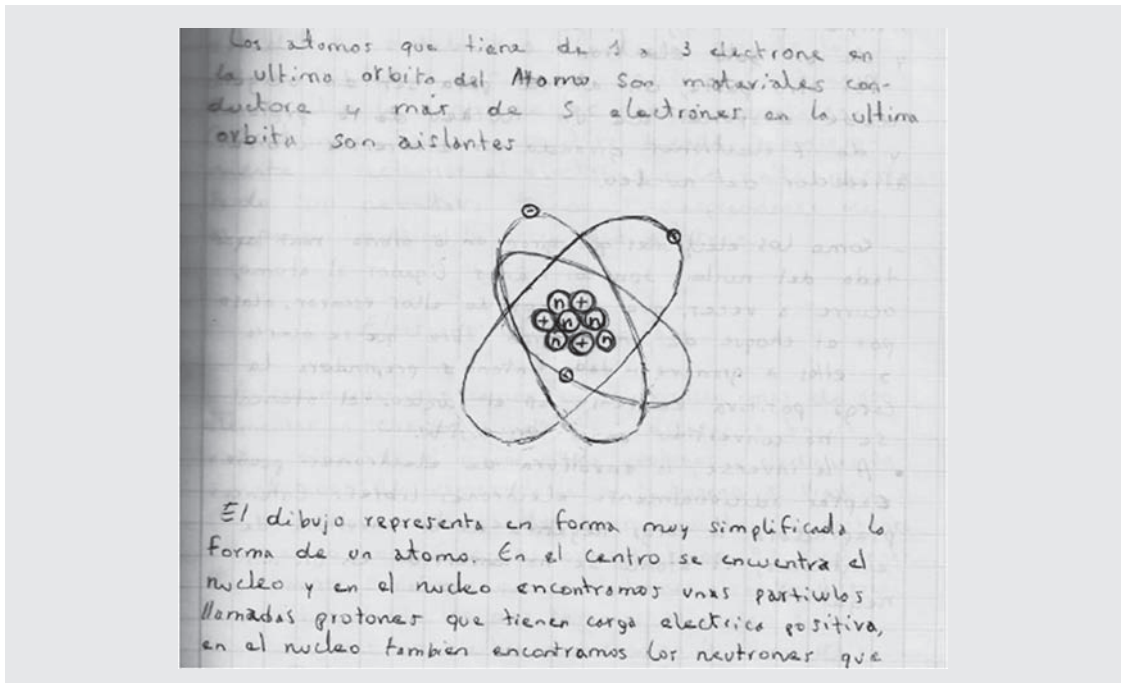 Los atomos que tiene de 1 a 3 electrone en
la ultima orbita del Atomo son materiales con-
ductora y más de 5 electrones en la ultima
orbita son aislantes
-
+
n +
+ n n
n + n
El dibujo representa en forma muy simplificada la
forma de un atomo. En el centro se encuentra el
nucleo y en el nucleo encontramos unas particulas
llamadas protones que tienen carga electrica positiva,
en el nucleo tambien encontramos los neutrones que